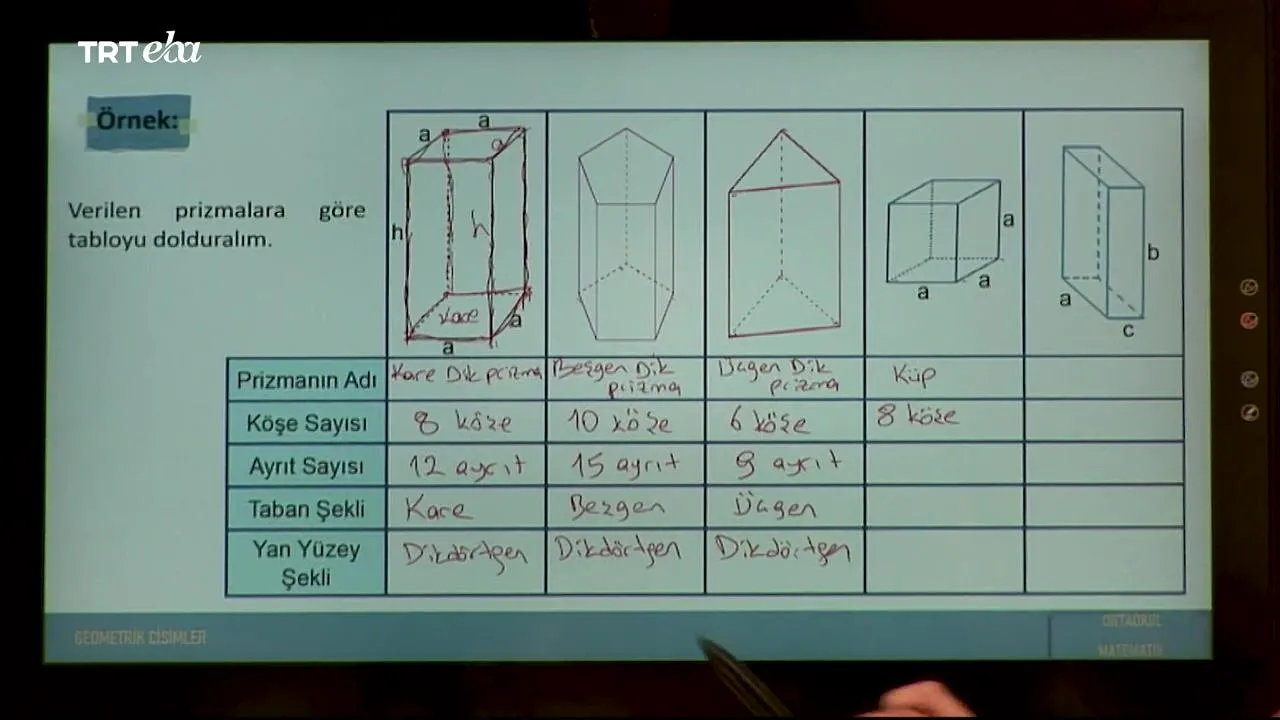 TRT eba
Örnek:
Verilen prizmalara göre
tabloyu dolduralım.
a a a
h h
Kare a
a
a a a
a b c
Prizmanın Adı Kare Dik prizma Beşgen Dik prizma Üçgen Dik prizma Küp
Köşe Sayısı 8 köşe 10 köşe 6 köşe 8 köşe
Ayrıt Sayısı 12 ayrıt 15 ayrıt 9 ayrıt
Taban Şekli Kare Beşgen Üçgen
Yan Yüzey Şekli Dikdörtgen Dikdörtgen Dikdörtgen
GEOMETRİK CİSİMLER
ORTAOKUL
MATEMATİK